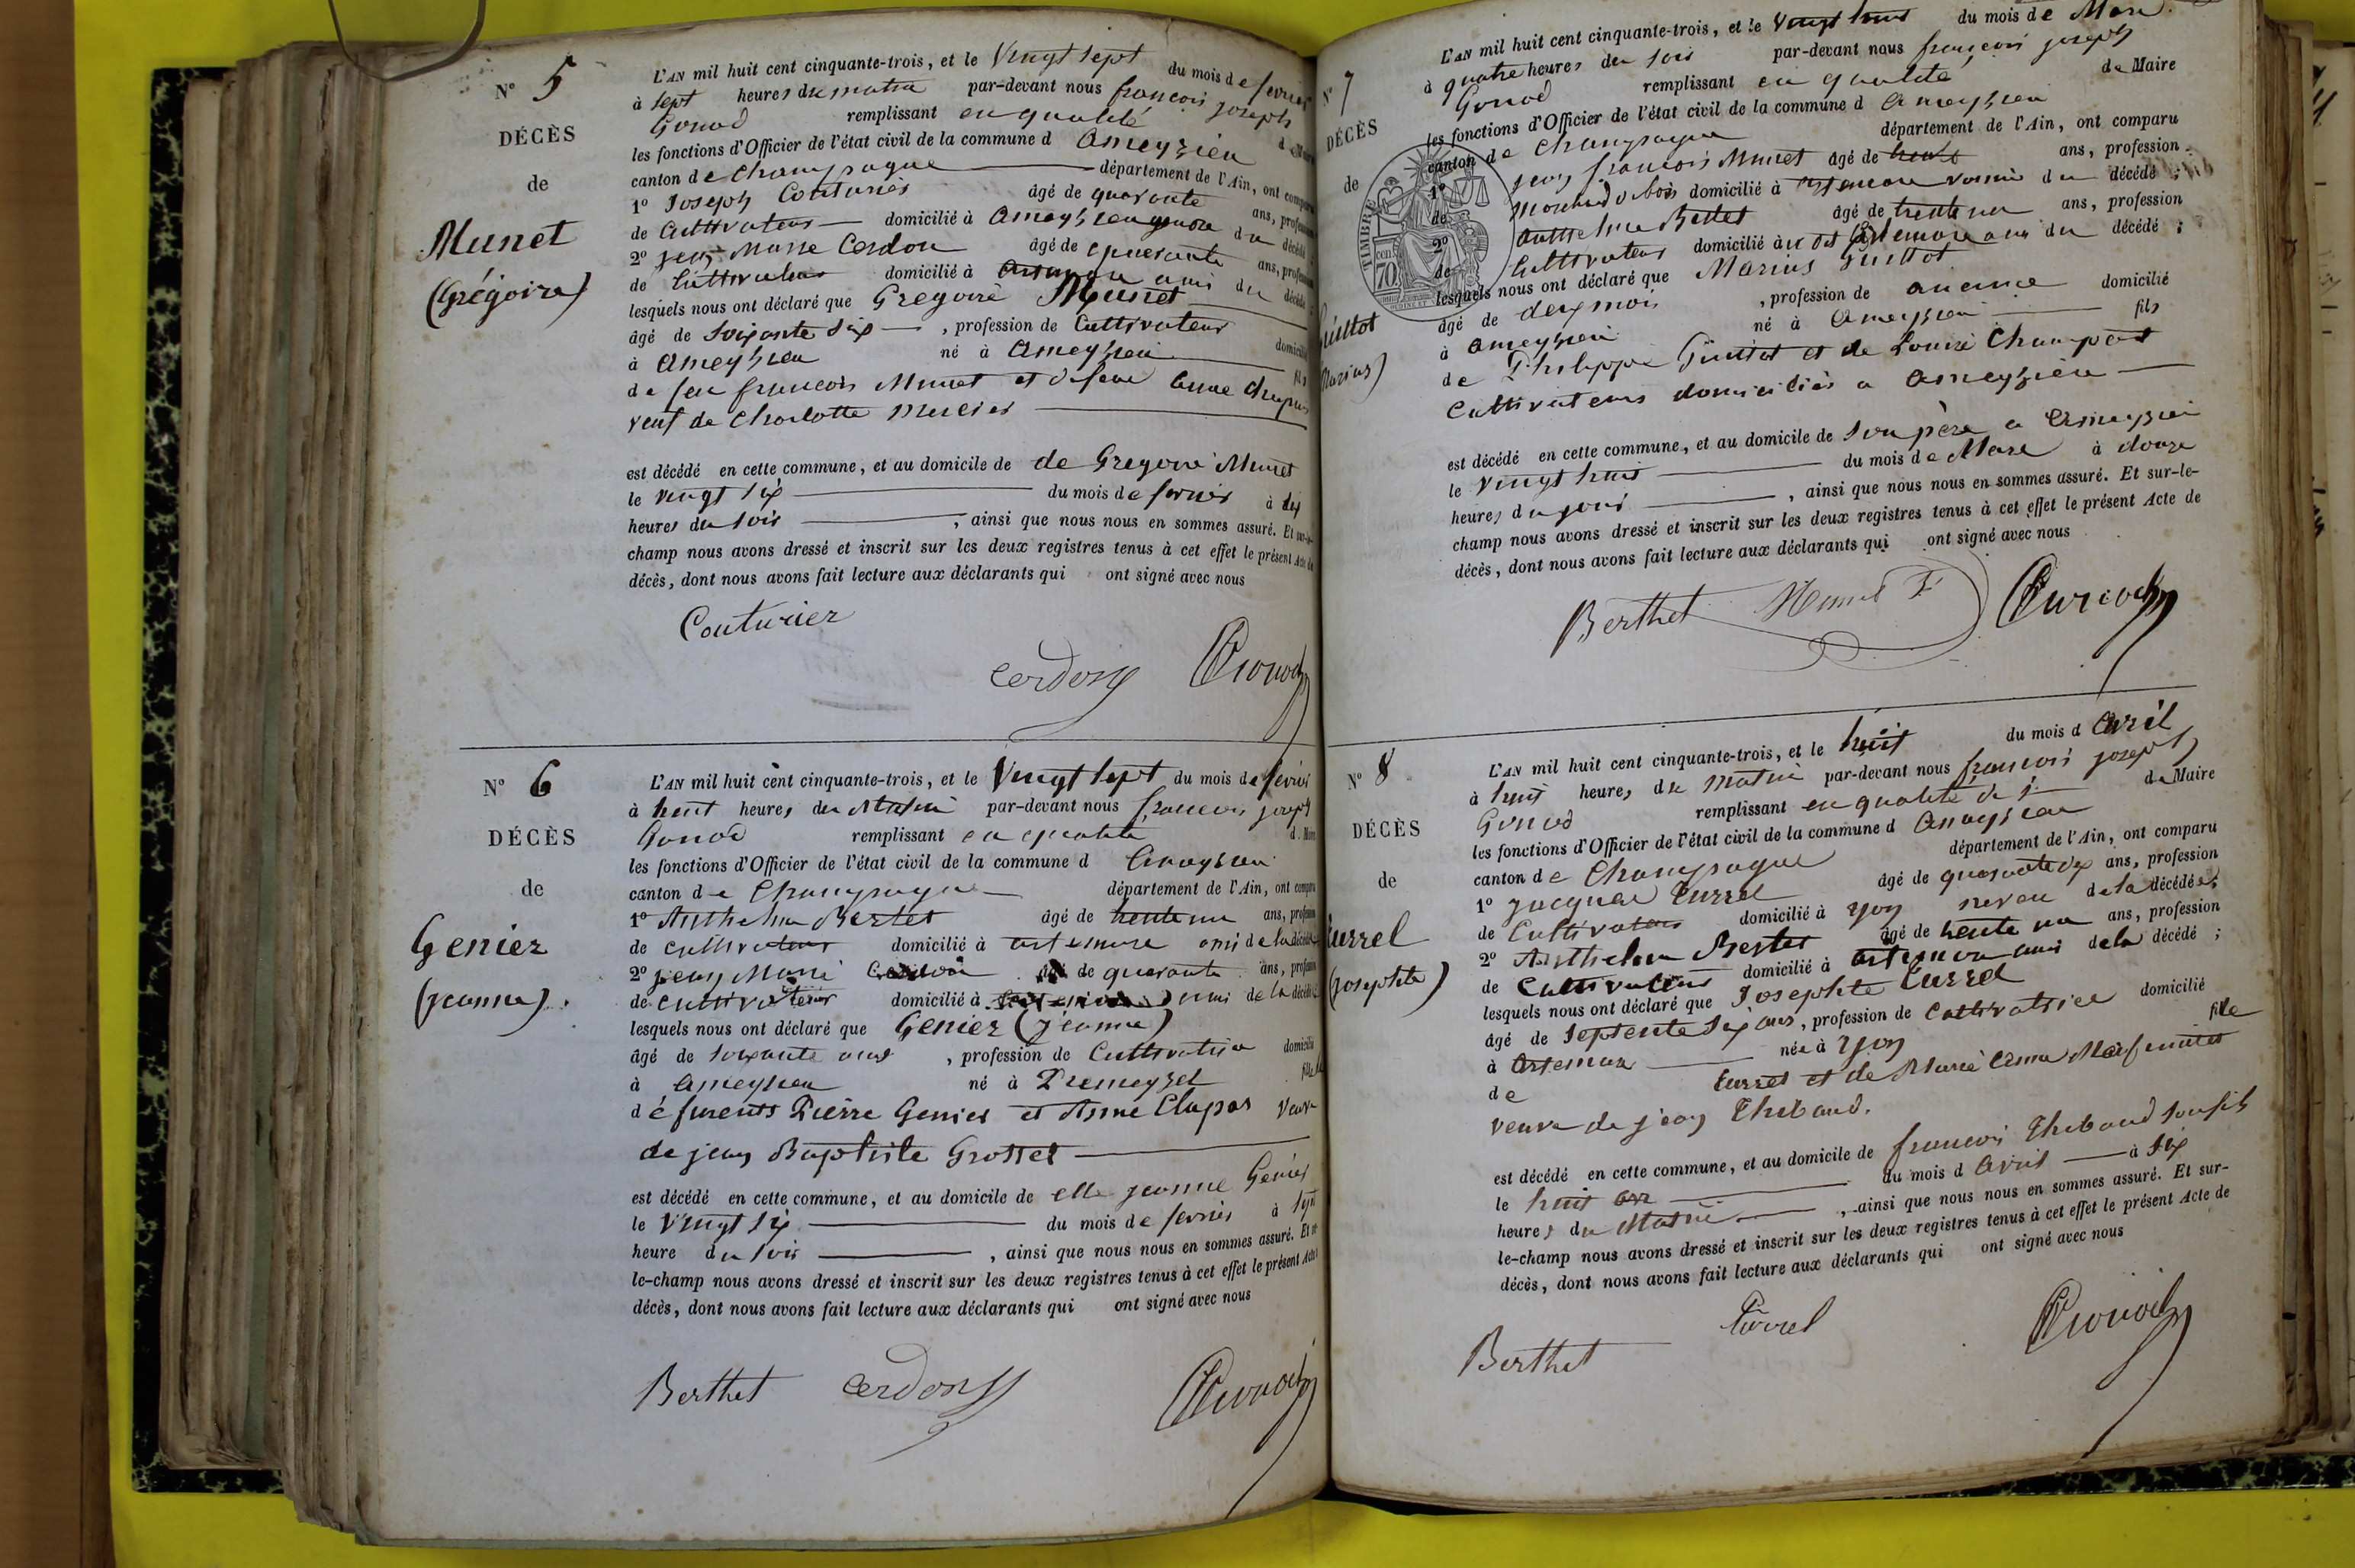 N° 5
DÉCÈS
de
Munet
(Grégoire)
L'AN mil huit cent cinquante-trois, et le Vingt sept du mois de fevrier
à sept heures du matin par-devant nous françois joseph
Gonod remplissant en qualité
les fonctions d'Officier de l'état civil de la commune d Ameyzieu
canton de Champagne département de l'Ain, ont comparu
1° Joseph Couturier âgé de quarante ans, profession
de Cultivateur domicilié à Ameyzieu du décédé
2° jean Marie Cerdon âgé de quarante ans, profession
de Cultivateur domicilié à Artemare ami du décédé
lesquels nous ont déclaré que Gregoire Munet
âgé de soixante six, profession de Cultivateur
à Ameyzieu né à Ameyzieu domicilié
de feu francois Munet et de feue Anne
veuf de Charlotte Mercier
est décédé en cette commune, et au domicile de de Gregoire Munet
le vingt six du mois de fevrier à dix
heures du soir, ainsi que nous nous en sommes assuré. Et sur-le-
champ nous avons dressé et inscrit sur les deux registres tenus à cet effet le présent Acte de
décès, dont nous avons fait lecture aux déclarants qui ont signé avec nous
Couturier
Cerdon Gonod
N° 6
DÉCÈS
de
Genier
(jeanne).
L'AN mil huit cent cinquante-trois, et le Vingt sept du mois de fevrier
à huit heures du Matin par-devant nous françois joseph
Gonod remplissant en qualité d. Maire
les fonctions d'Officier de l'état civil de la commune d Ameyzieu
canton de Champagne département de l'Ain, ont comparu
1° Anthelme Bertet âgé de trente un ans, profession
de cultivateur domicilié à artemare ami de la décédée
2° jean Marie Cerdon âgé de quarante ans, profession
de cultivateur domicilié à ami de la décédée
lesquels nous ont déclaré que Genier (jeanne)
âgé de soixante onze, profession de Cultivatrice domicilié
à Ameyzieu né à Premeyzel fille
défunts Pierre Genier et Anne Clapas Veuve
de jean Baptiste Grosset
est décédé en cette commune, et au domicile de elle jeanne Genier
le Vingt six du mois de fevrier à sept
heure du soir, ainsi que nous nous en sommes assuré. Et sur-
le-champ nous avons dressé et inscrit sur les deux registres tenus à cet effet le présent Acte
décès, dont nous avons fait lecture aux déclarants qui ont signé avec nous
Berthet Cerdon Gonod
N° 7
DÉCÈS
de
Guillot
(Marius)
TIMBRE
70 cen
L'AN mil huit cent cinquante-trois, et le Vingt huit du mois de Mars
à quatre heures du soir par-devant nous françois joseph
Gonod remplissant en qualité de Maire
les fonctions d'Officier de l'état civil de la commune d Ameyzieu
canton de Champagne département de l'Ain, ont comparu
1° jean francois Munet âgé de trente ans, profession
de Marchand de bois domicilié à Artemare voisin du décédé;
2° Anthelme Bertet âgé de trente un ans, profession
de Cultivateur domicilié au dit Artemare ami du décédé;
lesquels nous ont déclaré que Marius Guillot
âgé de dix mois, profession de aucune domicilié
à Ameyzieu né à Ameyzieu fils
de Philippe Guillot et de Louise Champort
Cultivateurs domiciliés a Ameyzieu
est décédé en cette commune, et au domicile de son père a Ameyzieu
le Vingt huit du mois de Mars à douze
heures du jour, ainsi que nous nous en sommes assuré. Et sur-le-
champ nous avons dressé et inscrit sur les deux registres tenus à cet effet le présent Acte de
décès, dont nous avons fait lecture aux déclarants qui ont signé avec nous
Berthet Munet F Gonod
N° 8
DÉCÈS
de
Turrel
(josephte)
L'AN mil huit cent cinquante-trois, et le huit du mois d Avril
à huit heures du matin par-devant nous françois joseph
Gonod remplissant en qualité de Maire
les fonctions d'Officier de l'état civil de la commune d Ameyzieu
canton de Champagne département de l'Ain, ont comparu
1° jacques Turrel âgé de quarante six ans, profession
de Cultivateur domicilié à Yon neveu de la décédée;
2° Anthelme Bertet âgé de trente un ans, profession
de Cultivateur domicilié à artemare ami de la décédé;
lesquels nous ont déclaré que Josephte Turrel
âgé de septente six ans, profession de Cultivatrice domicilié
à Artemare née à Yon fille
de Turrel et de Marie Anne
veuve de jean Thibaud.
est décédé en cette commune, et au domicile de francois Thibaud son fils
le huit du mois d Avril à six
heures du Matin, ainsi que nous nous en sommes assuré. Et sur-
le-champ nous avons dressé et inscrit sur les deux registres tenus à cet effet le présent Acte de
décès, dont nous avons fait lecture aux déclarants qui ont signé avec nous
Berthet Turrel Gonod